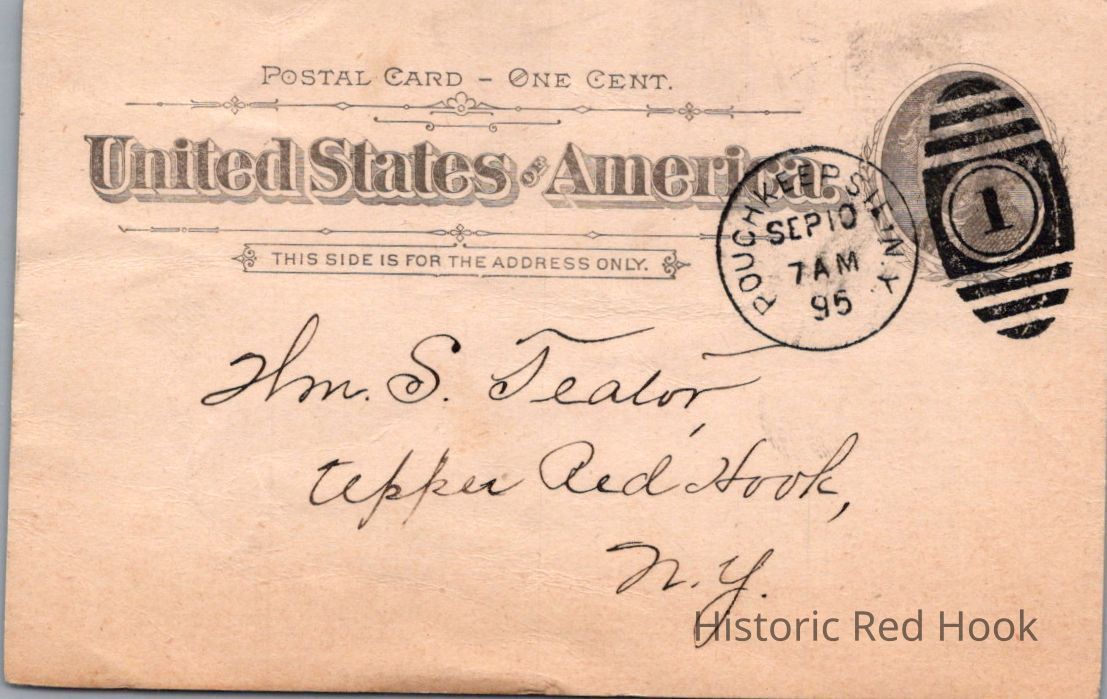 POSTAL CARD – ONE CENT.
United States OF America.
THIS SIDE IS FOR THE ADDRESS ONLY.
POUGHKEEPSIE N.Y.
SEP 10
7 AM
95
1
Wm. S. Teator,
Upper Red Hook,
N.Y.
Historic Red Hook